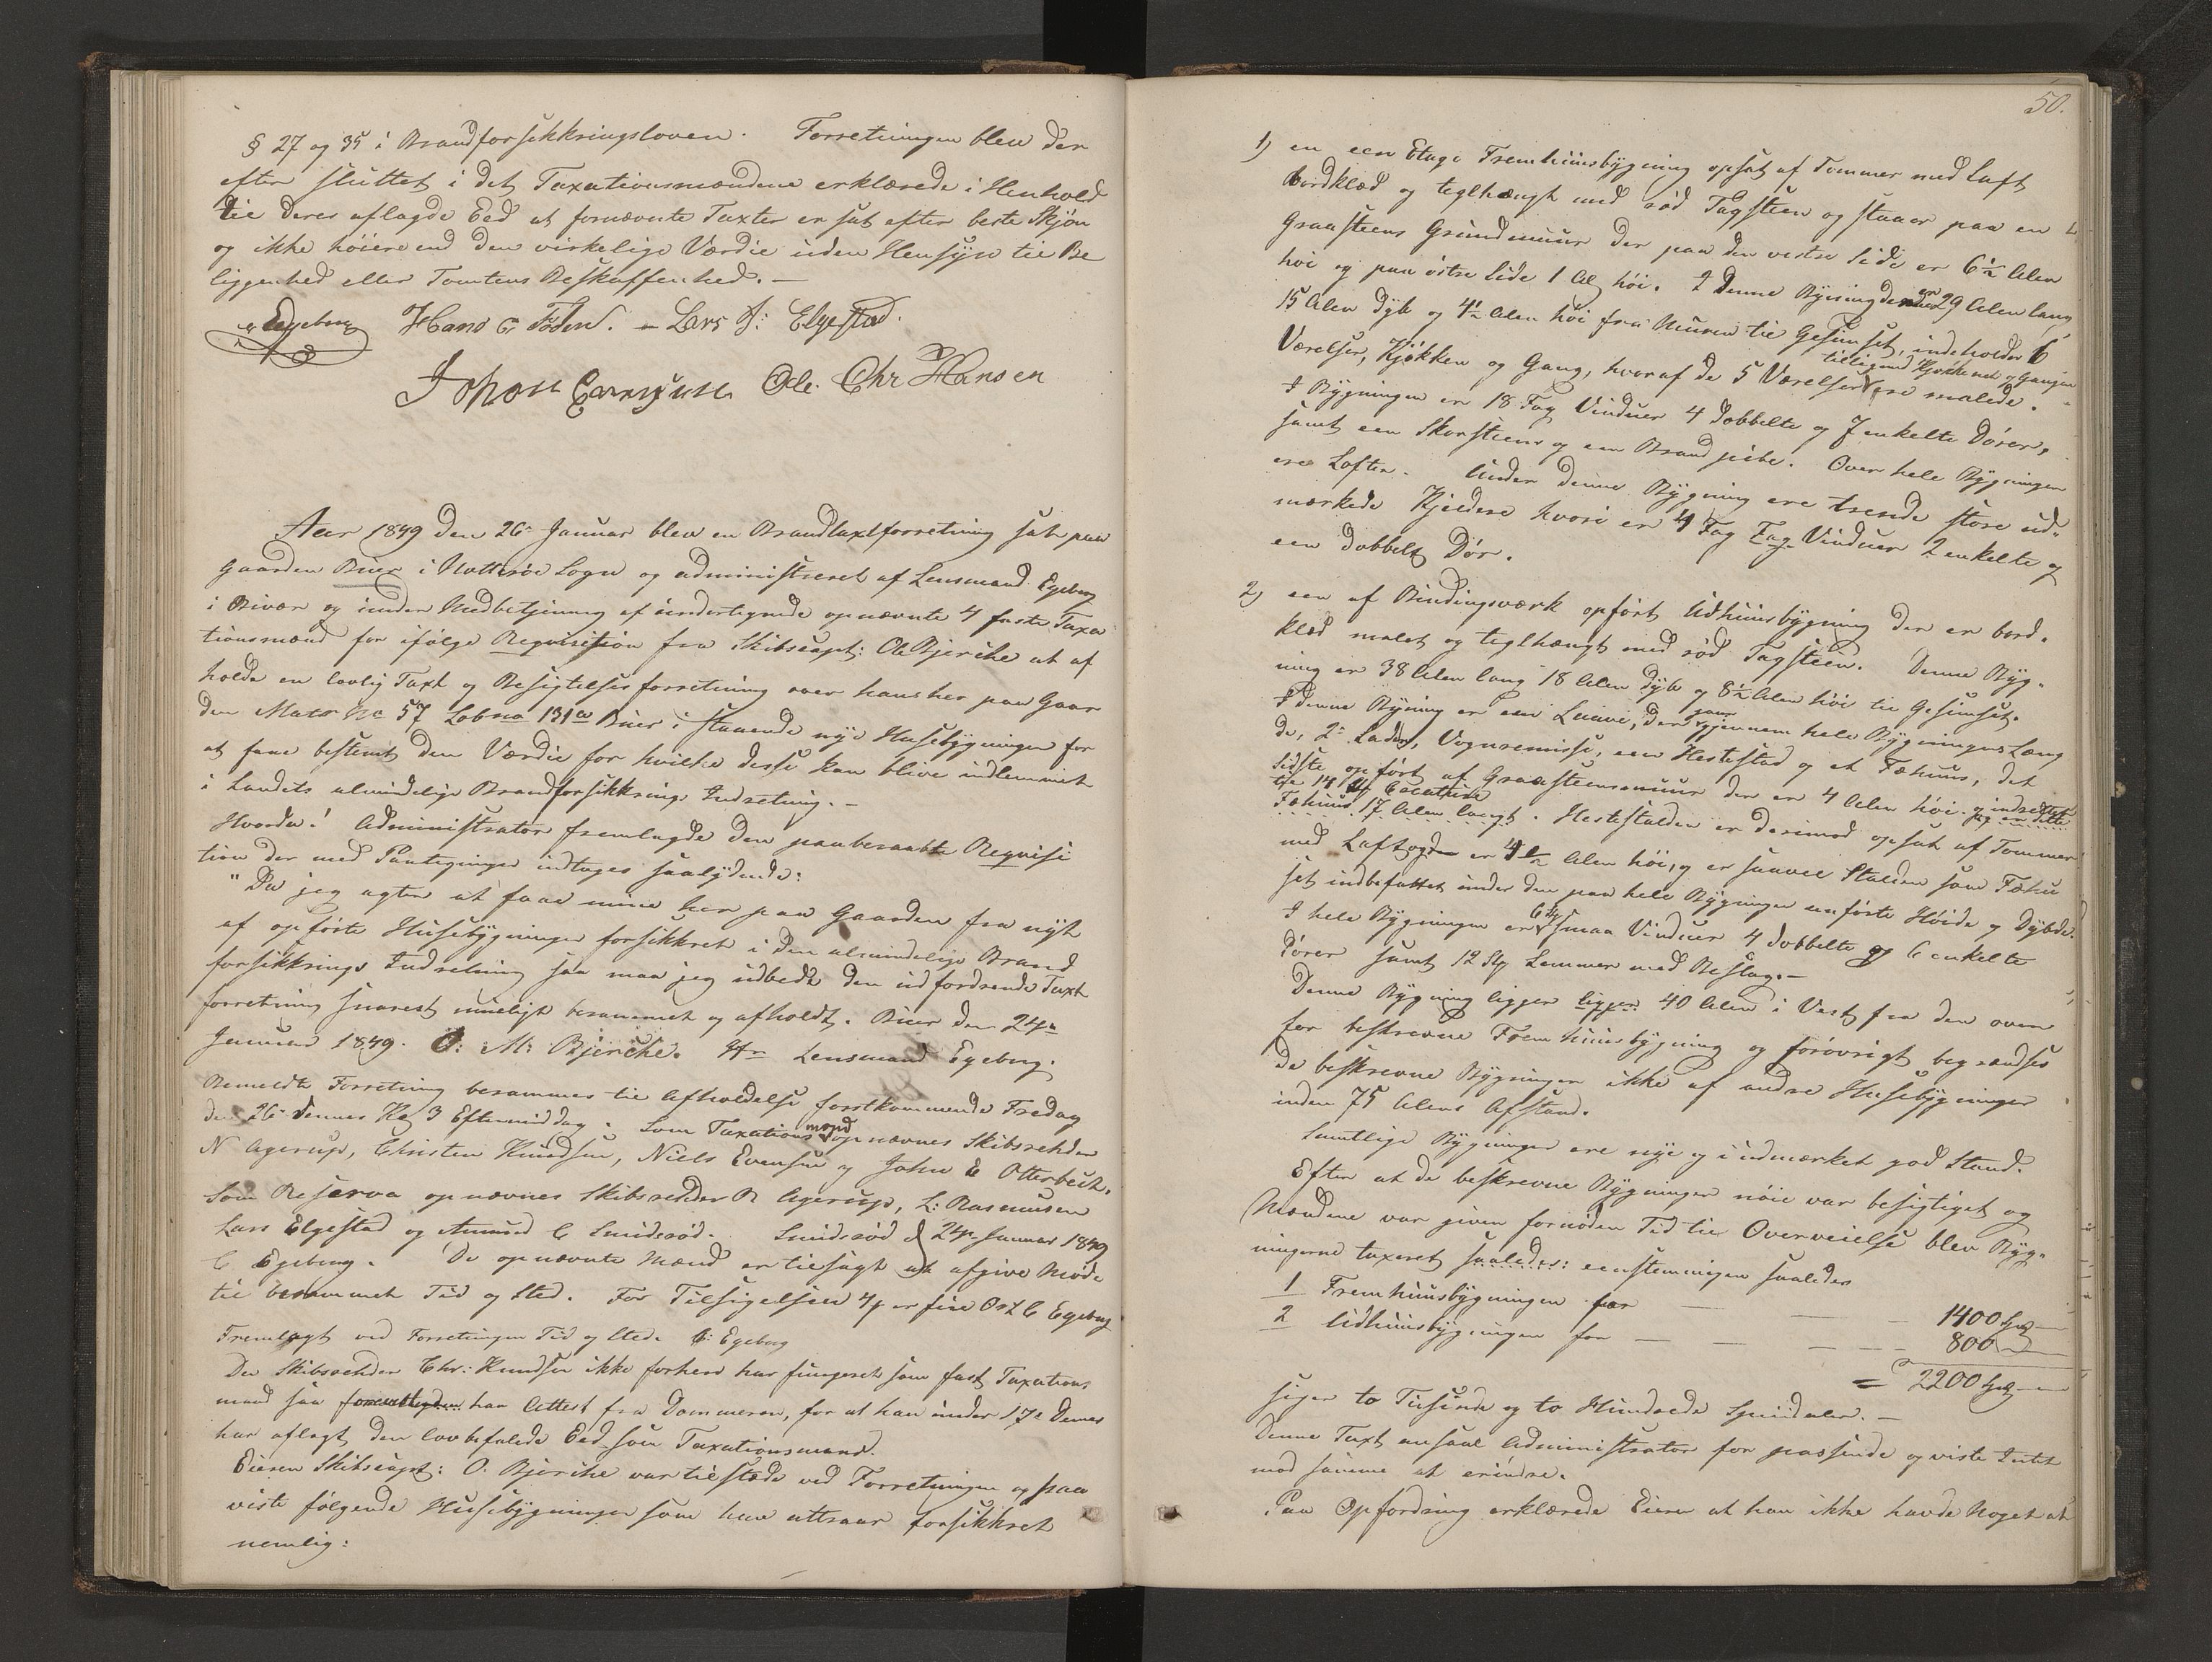 § 27 og 35 i Brandforsikkringsloven. Forretningen blev der
efter sluttet i det Taxationsmændene erklærede i Henhold
til deres aflagde Eed at fornævnte Taxter er sat efter beste Skjøn
og ikke høiere end den virkelige Værdie uden Hensyn til Be
liggenhed eller Tomtens Beskaffenhed. —
Egeberg Hans C. Föden. - Lars J: Elgestad.
Johan Ole Chr Hansen
Aar 1849 den 26. Januar blev en Brandtaxtforretning sat paa
Gaarden Buer i Nøtterøe Sogn og administreret af Lensmand Egeberg
i Bivær og under Medbetjening af undertegnede opnævnte 4 faste Taxa
tionsmænd for ifølge Requisition fra Skibscapt: O Bjerche at af
holde en lovlig Taxt og Besigtelses forretning over hans her paa Gaar
den Matr No 57 Løbno 131a Buer i staaende nye Husebygninger for
at faae bestemt den Værdie for hvilke disse kan blive indlemmet
i Landets almindelige Brandforsikkrings Indretning. —
Hvorda! Administrator fremlagde den paaberaabte Requisi
tion der med Paategninger indtages saalydende:
"Da jeg agter at faae mine her paa Gaarden fra nyt
af opførte Husebygninger forsikkret i den almindelige Brand
forsikkrings Indretning saa maa jeg udbede den udfordrende Taxt
forretning snarest mueligt berammet og afholdt. Buer den 24de
Januar 1849. O: M: Bjerche. Hr Lensmand Egeberg.
Anmeldte Forretning berammes til Afholdelse førstkommende Fredag
den 26. dennes Kl 3 Eftermiddag. Som Taxationsmænd opnævnes Skibsrehder
N Agerup, Christen Knudsen, Niels Evensen og John E Otterbech.
Som Reserve opnævnes Skibsrehder R Agerup, L: Rasmusen
Lars Elgestad og Amund C Smidsrød. Smidsrød d 24de Januar 1849
C Egeberg. De opnævnte Mænd er tilsagt at afgive Møde
til berammet Tid og Sted. For Tilsigelsen
Fremlagt ved Forretningens Tid og Sted. C: Egeberg
Da Skibsrehder Chr: Knudsen ikke forhen har fungeret som fast Taxations
mand saa har Attest fra Dommeren, for at han under 17de Dennes
har aflagt den lovbefalede Eed som Taxationsmand.
Eieren Skibscapt: O. Bjerche var tilstede ved Forretningen og paa
viste følgende Husebygninger som han attraar forsikkret
nemlig:
50.
1) en een Etage Fremhuusbygning opsat af Tømmer med Laft
bordklæd og teglhængt med rød Tagsteen og staaer paa en
Graasteens Grundmuur der paa den vestre Side er 6½ Alen
høi og paa østre Side 1 Al høi. Denne Bygning der er 29 Alen lang
15 Alen dyb og 4½ Alen høi fra Muren til Gesimset, indeholder 6
Værelser, Kjøkken og Gang, hvoraf de 5 Værelser tilligemed Kjøkkenet og Gangen ere malede.
I Bygningen er 18 Fag Vinduer 4 dobbelte og 7 enkelte Dører,
samt een Skorsteen og een Brandpibe. Over hele Bygningen
ere Lofter. Under denne Bygning ere trende store ud-
mærkede Kjeldere hvori er 4 Fag Fag Vinduer 2 enkelte og
een dobbelt Dør.
2) een af Bindingsværk opført Udhuusbygning der er bord-
klæd malet og teglhængt med rød Tagsteen. Denne Byg-
ning er 38 Alen lang 18 Alen dyb og 8½ Alen høi til Gesimset.
I denne Bygning er een Laave, der gaaer gjennem hele Bygningens Læng
de, 2de Lader, Vognremisse, een Hestestald og et Fæhuus, det
sidste opført af Graasteensmuur der er 4 Alen høi og indrettet
til 14 Creature og er dette
Fæhuus 17 Alen langt. Hestestalden er derimod opsat af Tømmer
med Laft og er 4½ Alen høi, og er saavel Stalden som Fæhu
set indbefattet under den paa hele Bygningen anførte Høide og Dybde.
I hele Bygningen er 6 smaa Vinduer 4 dobbelte og 6 enkelte
Dører samt 12 Stk Lemmer med Beslag. —
Denne Bygning ligger ligger 40 Alen i Vest fra den oven
for beskrevne Fremhuusbygning og forøvrigt begrændses
de beskrevne Bygninger ikke af andre Husebygninger
inden 75 Alens Afstand.
Samtlige Bygninger ere nye og i udmærket god Stand.
Efter at de beskrevne Bygninger nøie var besigtiget og
Mændene var given fornøden Tid til Overveielse blev Byg-
ningerne taxeret saaledes: eenstemmigen saaledes
1 Fremhuusbygningen for — — — 1400 Spd —
2 Udhuusbygningen for — — — — 800 —
= 2200 Spd —
siger to Tusinde og to Hundrede Speciedaler. —
Denne Taxt ansaae Administrator for passende og viste Intet
mod samme at erindre.
Paa Opfordring erklærede Eieren at han ikke havde Noget at